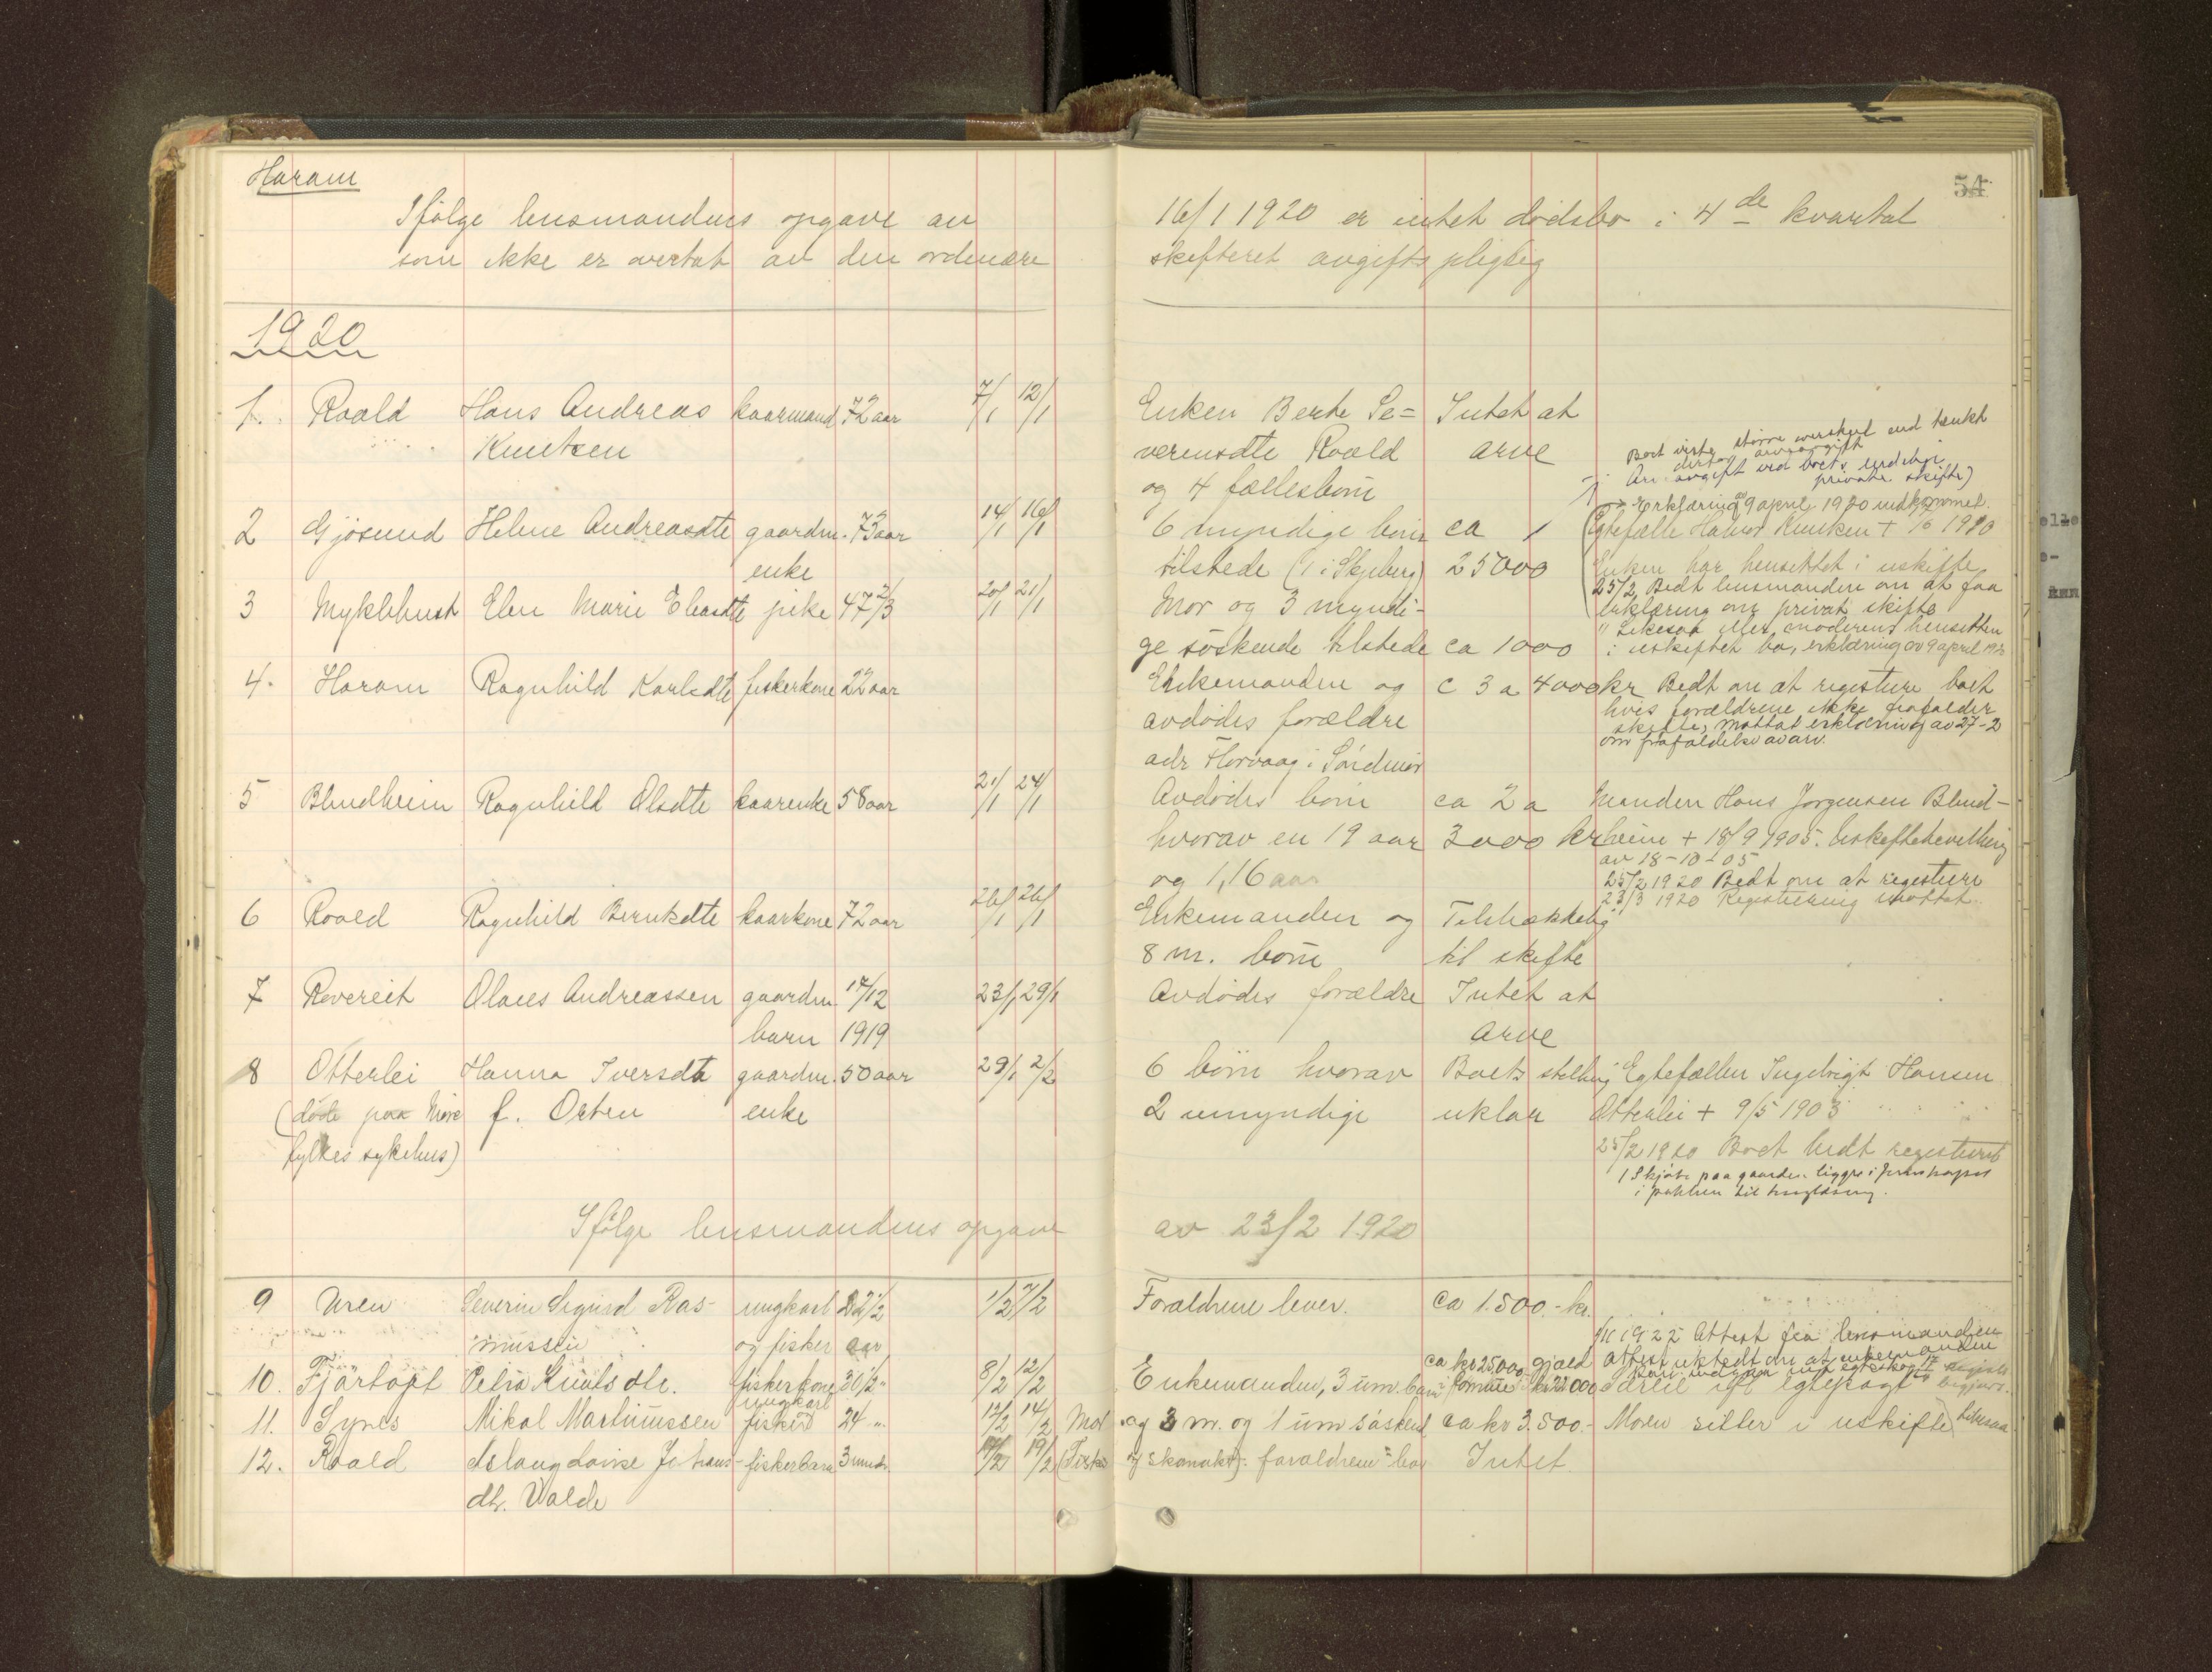 Haram
54
Ifølge lensmandens opgave av 16/1 1920 er intet dødsbo i 4de kvartal
som ikke er overtat av den ordinære skifteret avgiftspligtig
1920
1. Roald Hans Andreas kaarmand 72 aar 7/1 12/1 Enken Berte Se= Intet at
Knutsen verensdte Roald arve
og 4 fællesbørn
Boet viste større overskud end tænkt
privat skifte)
Erklæring av 9 april 1920 indkommet
2 Gjøsund Helene Andreasdte gaardm. 73 aar 14/1 16/1 6 myndige børn ca Egtefælle Halvor Knutsen + 1920
enke tilstede (1 i Skjeberg) 25000 Enken har hensittet i uskifte
25/2 Bedt lensmanden om at faa
3 Myklebust Elen Marie Eliasdte pike 47 2/3 20/1 21/1 Mor og 3 myndi- erklæring om privat skifte
ge søskende tilstede ca 1000 " Likesaa eller moderens hensitten
i uskiftet bo, erklæring av 9 april
4. Haram Ragnhild Karlsdte fiskerkone 22 aar Enkemanden og c 3 a 4000 kr Bedt om at registrere boet
avdødes forældre hvis forældrene ikke frafalder
skifte, mottat erklæring av 27-2
om frafaldelse av arv.
adr Florvaag i Søndmør
5 Blindheim Ragnhild Olsdte kaarenke 58 aar 21/1 24/1 Avdødes børn ca 2 a Manden Hans Jørgensen Blind-
hvorav en 19 aar 3000 kr heim + 18/9 1905. Uskiftebevilling
av 18-10-05
og 1, 16 aar 25/2 1920 Bedt om at registrere
23/3 1920 Registrering mottat
6 Roald Ragnhild Berntsdte kaarkone 72 aar 26/1 26/1 Enkemanden og Tilstrækkelig
8 m. børn til skifte
7 Rovereit Olaus Andreassen gaardm. 17/12 23/1 29/1 Avdødes forældre Intet at
barn 1919 arve
8 Otterlei Hanna Iversdtr gaardm. 50 aar 29/1 2/2 6 børn hvorav Boets stilling Egtefællen Ingebrigt Hansen
(døde paa Møre f. Orten enke 2 umyndige uklar Otterlei + 9/5 1903
fylkes sykehus) 25/2 1920 Boet bedt registrert
1 Skjøte paa gaarden ligger i
i pakken til tinglæsning.
Ifølge lensmandens opgave av 23/2 1920
9 Uren Severin Sigurd Ras- ungkarl 22 1/2 1/2 7/2 Forældrene lever. Ca 1.500.- kr.
mussen og fisker aar
1922 Attest fra lensmanden
Attest utstedt om at enkemanden
10. Fjørtoft Petra Knutsdtr. fiskerkone 30 1/2 " 8/2 12/2 Enkemanden, 3 um. barn ca kr 25000 gjæld
formue kr 22000
11. Synes Mikal Martinussen ungkarl fisker 24 " 12/2 14/2 Mor og 3 m. og 1 um søskend ca kr 3.500.- Moren sitter i uskifte
12. Roald Aslaug Lovise Johans- fiskerbarn 3 mndr. 17/2 19/2 forældrene har Intet.
dtr. Valde